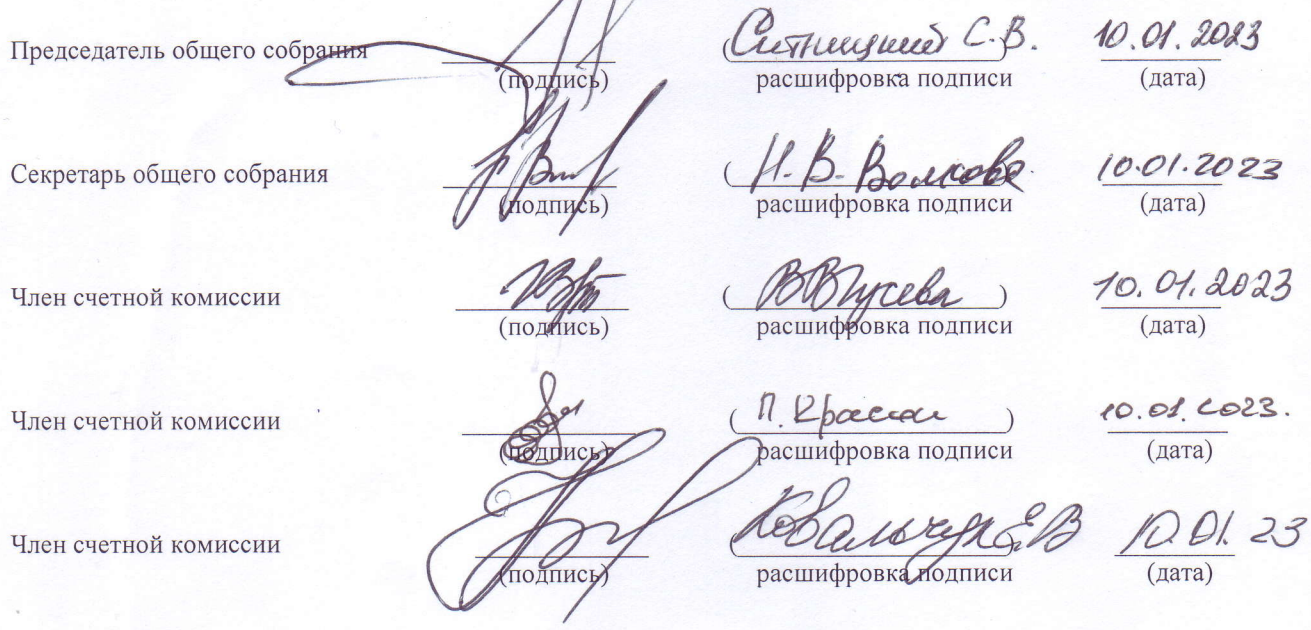 Председатель общего собрания (Ситницкий С.В.) 10.01.2023
(подпись) расшифровка подписи (дата)
Секретарь общего собрания (Н.В. Волкова 10.01.2023
(подпись) расшифровка подписи (дата)
Член счетной комиссии (ВВГусева) 10.01.2023
(подпись) расшифровка подписи (дата)
Член счетной комиссии (П. ) 10.01.2023.
(подпись) расшифровка подписи (дата)
Член счетной комиссии (Ковальчук Е.В 10.01.23
(подпись) расшифровка подписи (дата)